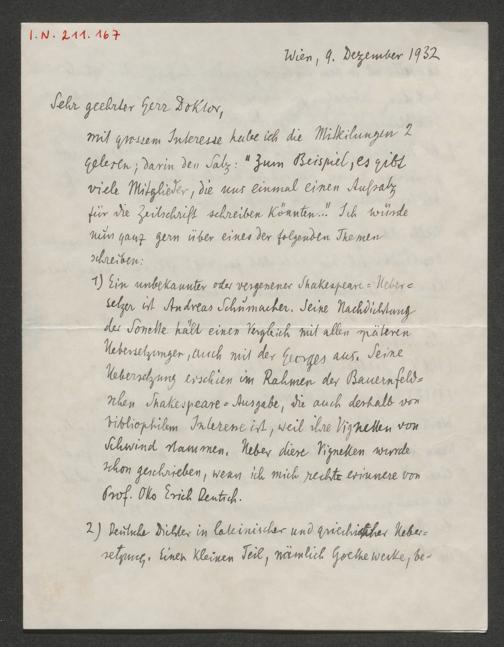 I.N. 211.167
Wien, 9. Dezember 1932
Sehr geehrter Herr Doktor,
mit grossem Interesse habe ich die Mitteilungen 2
gelesen; darin den Satz: "Zum Beispiel, es gibt
viele Mitglieder, die uns einmal einen Aufsatz
für die Zeitschrift schreiben könnten..." Ich würde
nun ganz gern über eines der folgenden Themen
schreiben:
1) Ein unbekannter oder vergessener Shakespeare=Ueber-
setzer ist Andreas Schumacher. Seine Nachdichtung
der Sonette hält einen Vergleich mit allen späteren
Uebersetzungen, auch mit der Georges aus. Seine
Uebersetzung erschien im Rahmen der Bauernfeld=
schen Shakespeare=Ausgabe, die auch deshalb von
bibliophilem Interesse ist, weil ihre Vignetten von
Schwind stammen. Ueber diese Vignetten wurde
schon geschrieben, wenn ich mich recht erinnere von
Prof. Otto Erich Deutsch.
2) Deutsche Dichter in lateinischer und griechischer Ueber-
setzung. Einen kleinen Teil, nämlich Goethewerke, be-